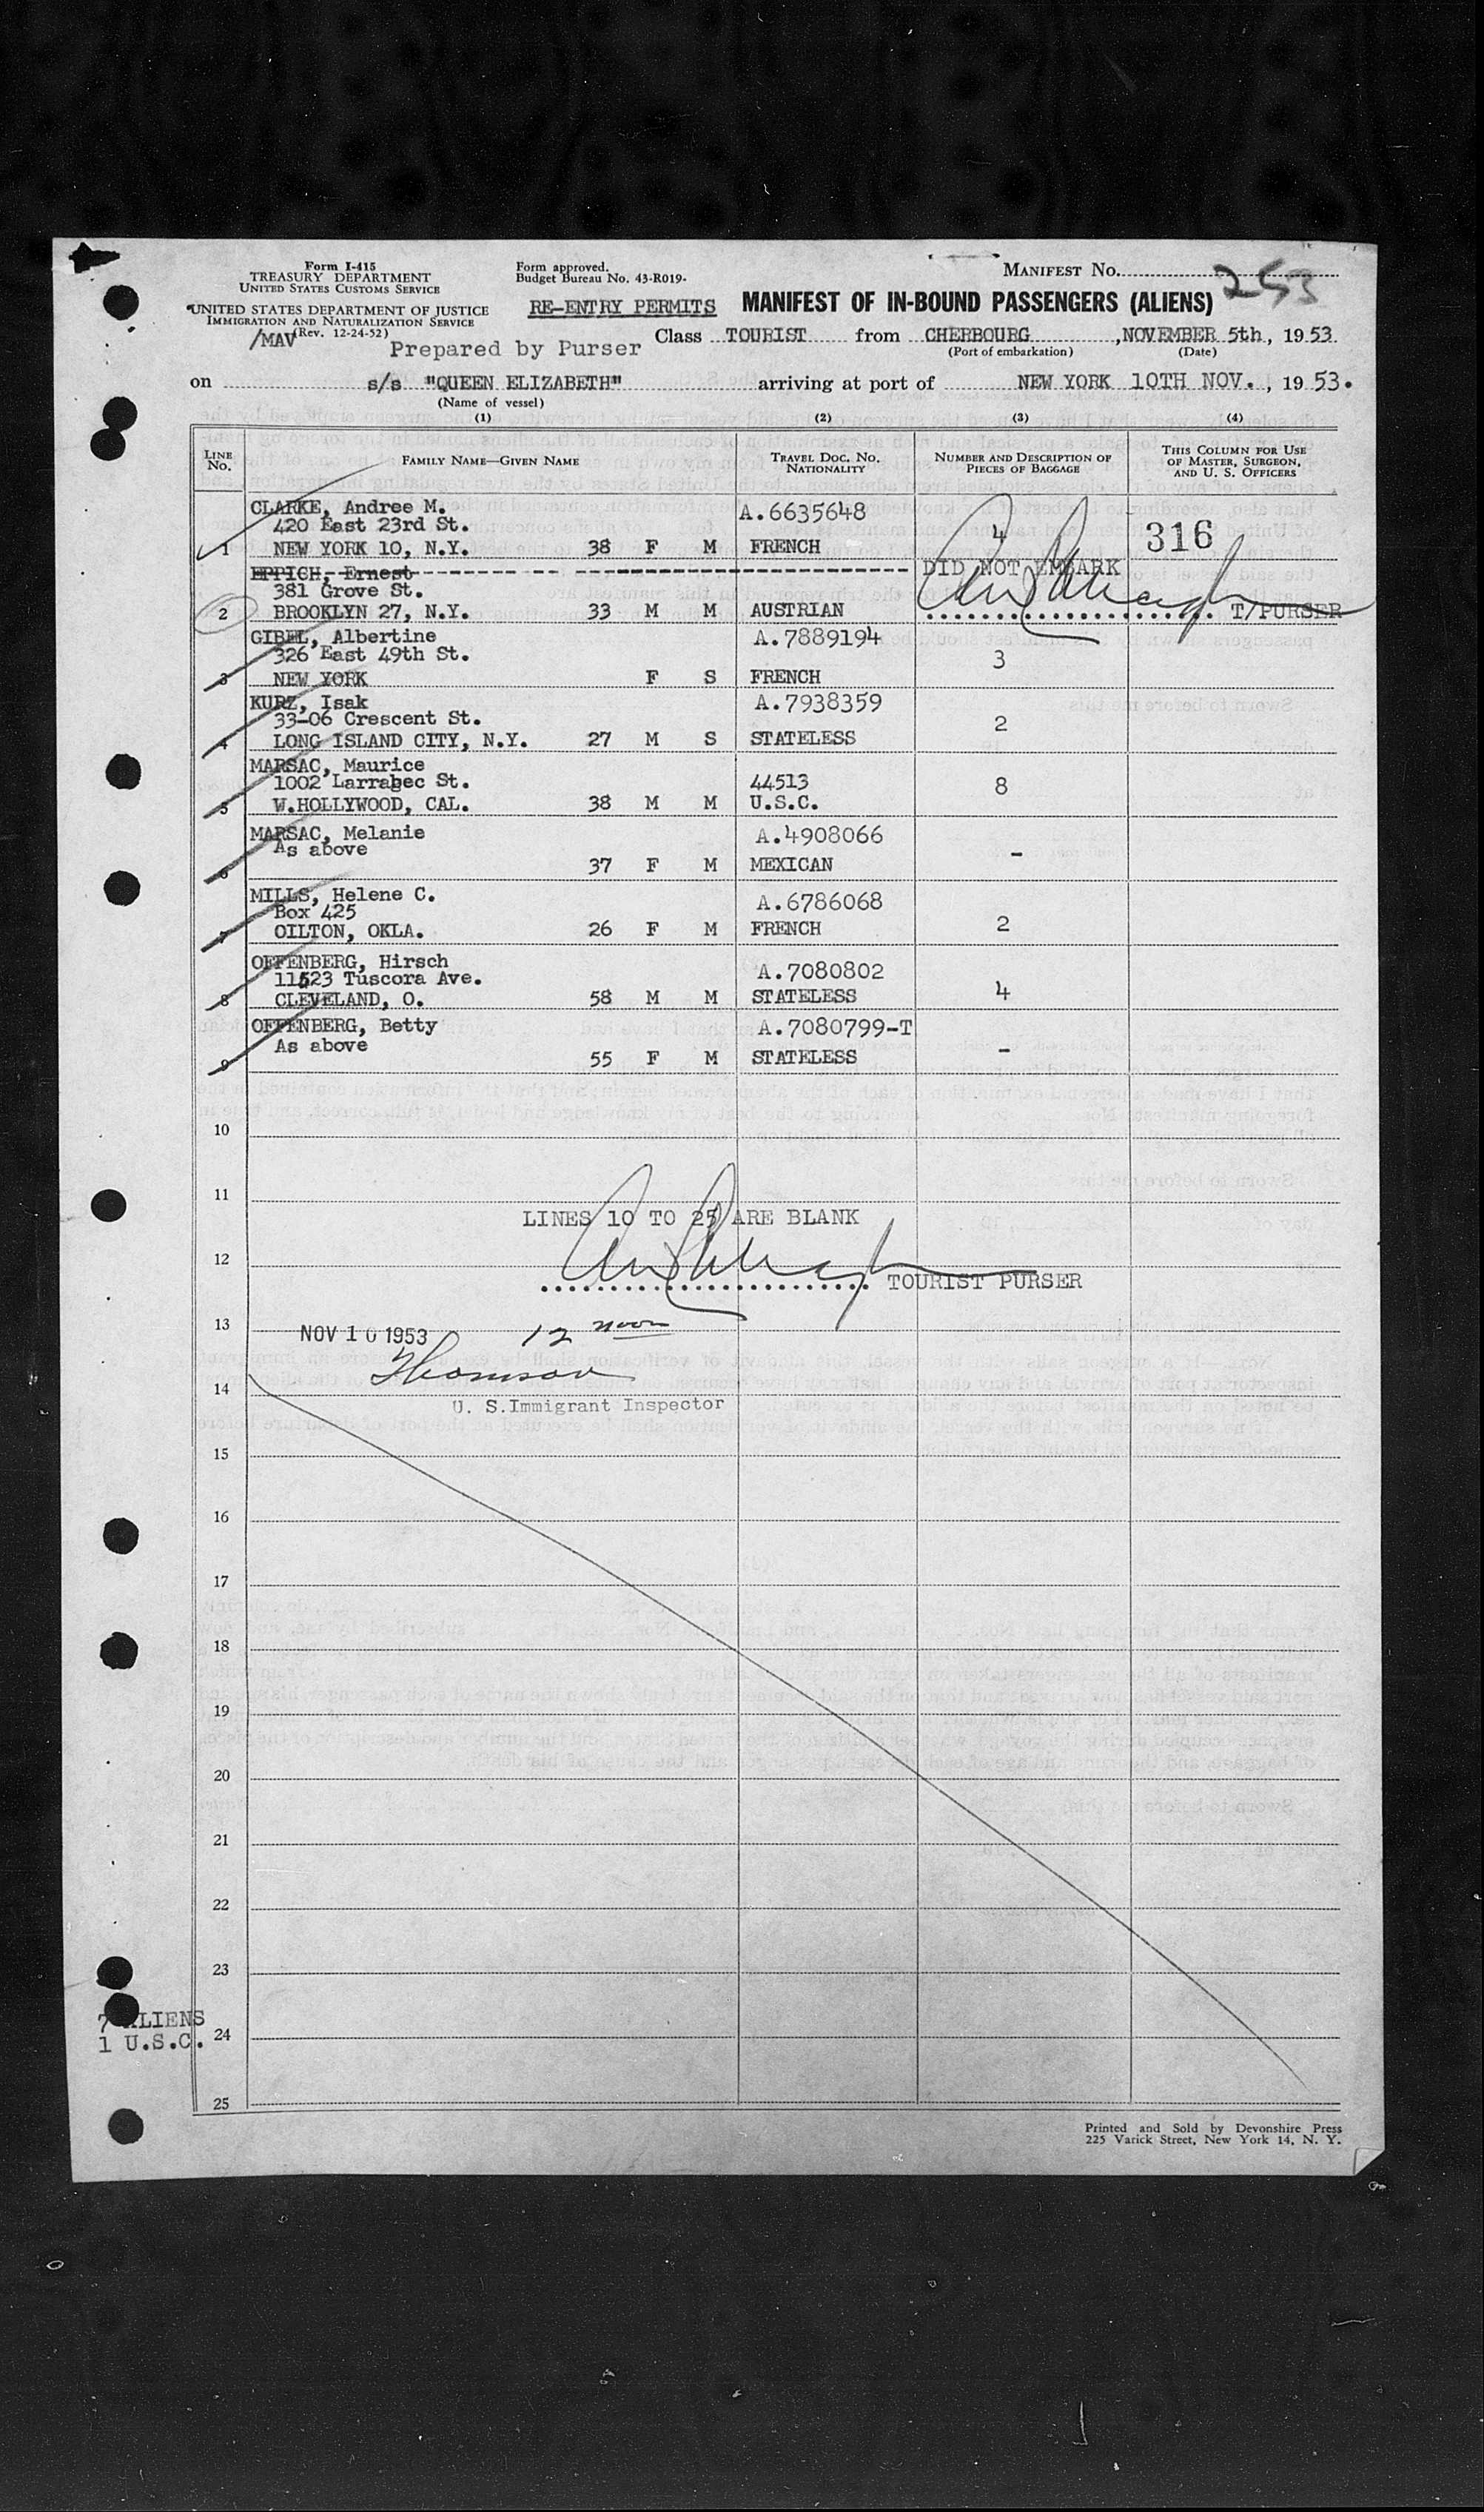 Form I-415
TREASURY DEPARTMENT
UNITED STATES CUSTOMS SERVICE
UNITED STATES DEPARTMENT OF JUSTICE
IMMIGRATION AND NATURALIZATION SERVICE
(Rev. 12-24-52)
/MAV
Form approved.
Budget Bureau No. 43-R019-
MANIFEST No. 253
RE-ENTRY PERMITS MANIFEST OF IN-BOUND PASSENGERS (ALIENS)
Prepared by Purser Class TOURIST from CHERBOURG, NOVEMBER 5th, 1953
(Port of embarkation) (Date)
on s/s "QUEEN ELIZABETH" arriving at port of NEW YORK 10TH NOV., 1953.
(Name of vessel)
(1) (2) (3) (4)
LINE No. FAMILY NAME—GIVEN NAME TRAVEL DOC. NO. NATIONALITY NUMBER AND DESCRIPTION OF PIECES OF BAGGAGE THIS COLUMN FOR USE OF MASTER, SURGEON, AND U. S. OFFICERS
CLARKE, Andree M. A.6635648
420 East 23rd St. 4 316
1 NEW YORK 10, N.Y. 38 F M FRENCH
EPPICH, Ernest DID NOT EMBARK
381 Grove St.
2 BROOKLYN 27, N.Y. 33 M M AUSTRIAN T/PURSER
GIBEL, Albertine A.7889194
326 East 49th St. 3
3 NEW YORK F S FRENCH
KURZ, Isak A.7938359
33-06 Crescent St. 2
4 LONG ISLAND CITY, N.Y. 27 M S STATELESS
MARSAC, Maurice
1002 Larrabec St. 44513 8
5 W.HOLLYWOOD, CAL. 38 M M U.S.C.
MARSAC, Melanie A.4908066
As above -
6 37 F M MEXICAN
MILLS, Helene C. A.6786068
Box 425 2
7 OILTON, OKLA. 26 F M FRENCH
OFFENBERG, Hirsch A.7080802
11523 Tuscora Ave. 4
8 CLEVELAND, O. 58 M M STATELESS
OFFENBERG, Betty A.7080799-T
As above -
9 55 F M STATELESS
10
11
LINES 10 TO 25 ARE BLANK
12
TOURIST PURSER
13
NOV 10 1953 12 noon
Thomson
14
U. S.Immigrant Inspector
15
16
17
18
19
20
21
22
23
7 ALIENS
24
1 U.S.C.
25
Printed and Sold by Devonshire Press
225 Varick Street, New York 14, N. Y.